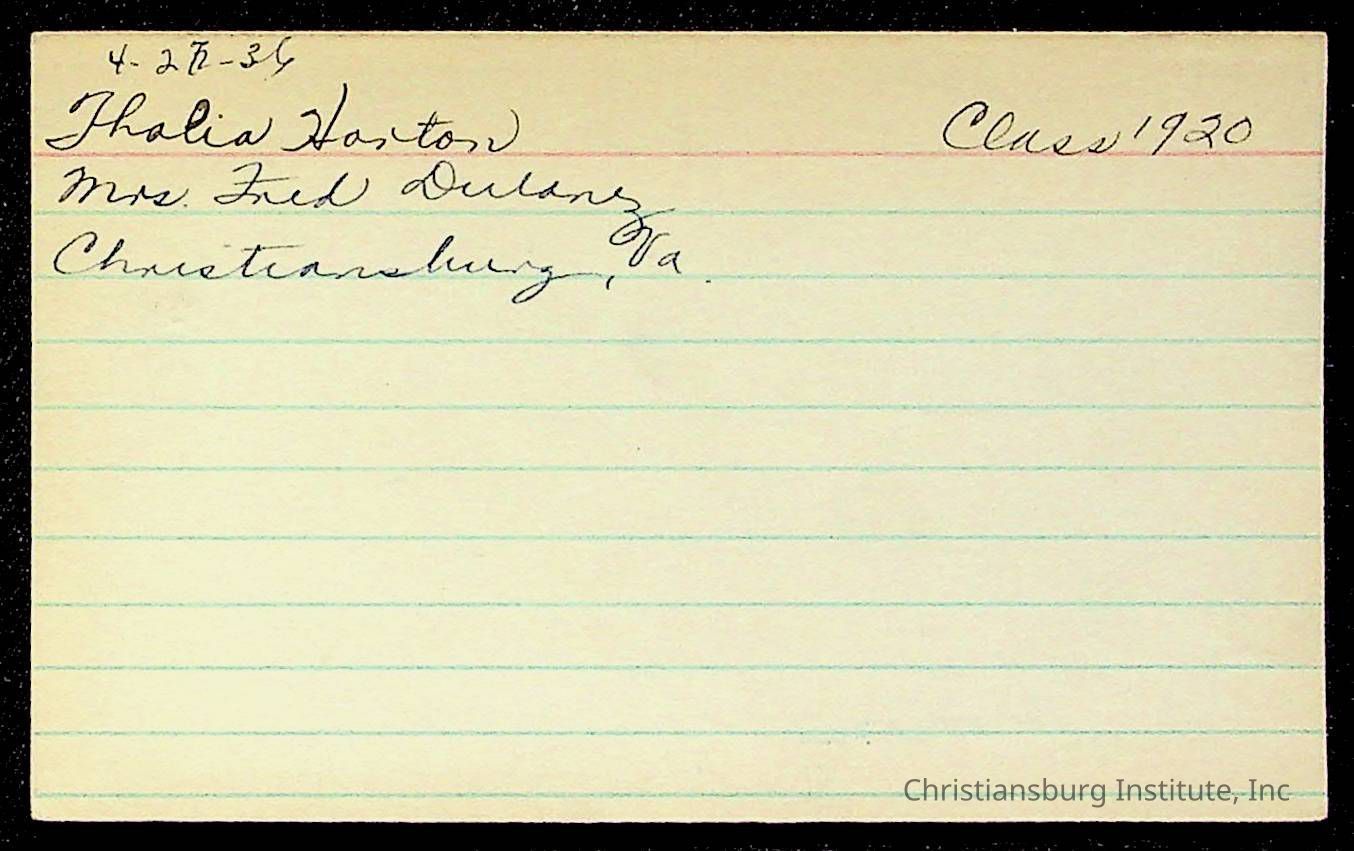 4-27-36
Thalia Horton Class 1920
Mrs. Fred Dulaney
Christiansburg, Va.
Christiansburg Institute, Inc